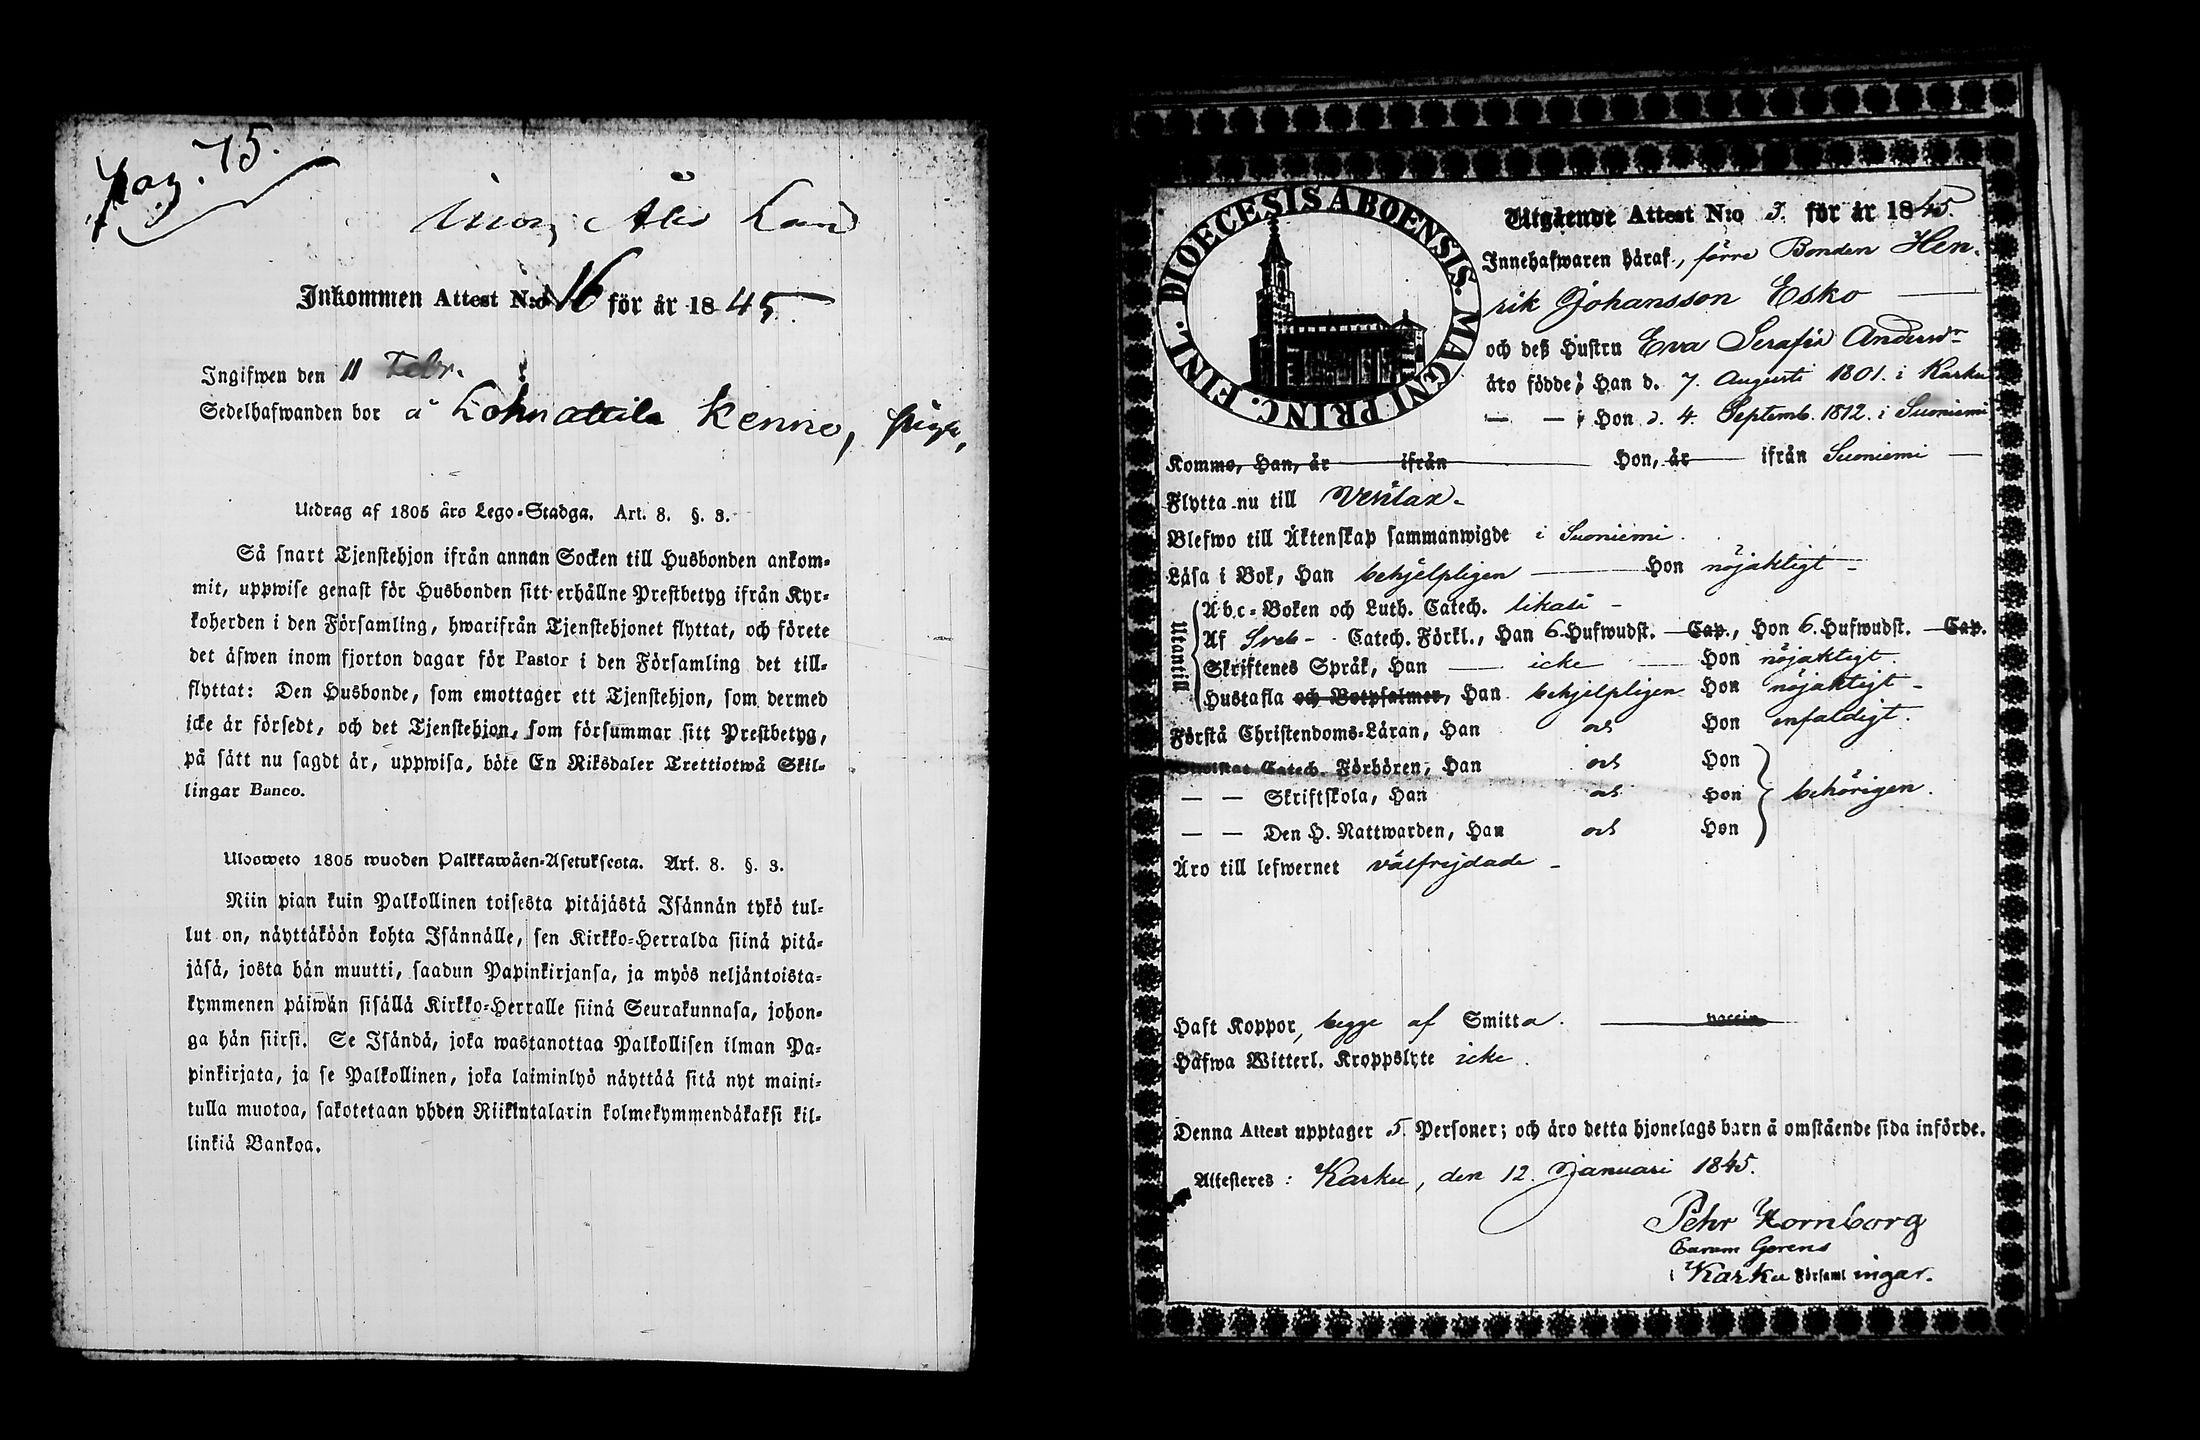 pag. 75.
Inkommen Attest N:o 16 för år 1845.
Ingifwen den 11 Febr.
Sedelhafwanden bor å
Utdrag af 1805 års Lego-Stadga. Art. 8. §. 3.
Så snart Tjenstehjon ifrån annan Socken till Husbonden ankom-
mit, uppwise genast för Husbonden sitt erhållne Prestbetyg ifrån Kyr-
koherden i den Församling, hwarifrån Tjenstehjonet flyttat, och förete
det äfwen inom fjorton dagar för Pastor i den Församling det till-
flyttat: Den Husbonde, som emottager ett Tjenstehjon, som dermed
icke är försedt, och det Tjenstehjon, som försummar sitt Prestbetyg,
på sätt nu sagdt är, uppwisa, böte En Riksdaler Trettiotwå Skil-
lingar Banco.
Ulosweto 1805 wuoden Palkkawäen-Asetuksesta. Art. 8. §. 3.
Niin pian kuin Palkollinen toisesta pitäjästä Isännän tykö tul-
lut on, näyttäköön kohta Isännälle, sen Kirkko-Herralda siinä pitä-
jäsä, josta hän muutti, saadun Papinkirjansa, ja myös neljäntoista-
kymmenen päiwän sisällä Kirkko-Herralle siinä Seurakunnasa, johon-
ga hän siirsi. Se Isändä, joka wastanottaa Palkollisen ilman Pa-
pinkirjata, ja se Palkollinen, joka laiminlyö näyttää sitä nyt maini-
tulla muotoa, sakotetaan yhden Riikintalarin kolmekymmendäkaksi kil-
linkiä Bankoa.
FINL. DIOECESIS ABOENSIS. MAGNI PRINC.
Utgående Attest N:o 3. för år 1845.
Innehafwaren häraf, förre Bonden Hen-
rik Johansson Esko
och deß Hustru Eva Serafia Andersdr
äro födde; Han d. 7. Augusti 1801. i Karku
— — Hon d. 4. Septemb. 1812. i Suoniemi
Kommo, Han, år ifrån Hon, år ifrån Suoniemi
Flytta nu till Vesilax.
Blefwo till Äktenskap sammanwigde i Suoniemi.
Läsa i Bok, Han behjelpligen Hon nöjaktigt
Utantill
Abc-Boken och Luth. Catech. likaså
Af Sveb- Catech. Förkl., Han 6 Hufwudst. Cap., Hon 6. Hufwudst. Cap.
Skriftenes Språk, Han icke Hon nöjaktigt.
Hustafla och Botpsalmer, Han behjelpligen Hon nöjaktigt
Förstå Christendoms-Läran, Han och Hon enfaldigt.
Catech. Förhören, Han och Hon
— — Skriftskola, Han och Hon behörigen.
— — Den H. Nattwarden, Han och Hon
Äro till lefwernet välfrejdade
Haft Koppor, begge af Smitta. vaccin
Hafwa Witterl. Kroppslyte icke.
Denna Attest upptager 5. Personer; och äro detta hjonelags barn å omstående sida införde.
Attesteres: Karku, den 12. Januari 1845.
Pehr Hornborg
Curam Gerens
i Karku Församlingar.